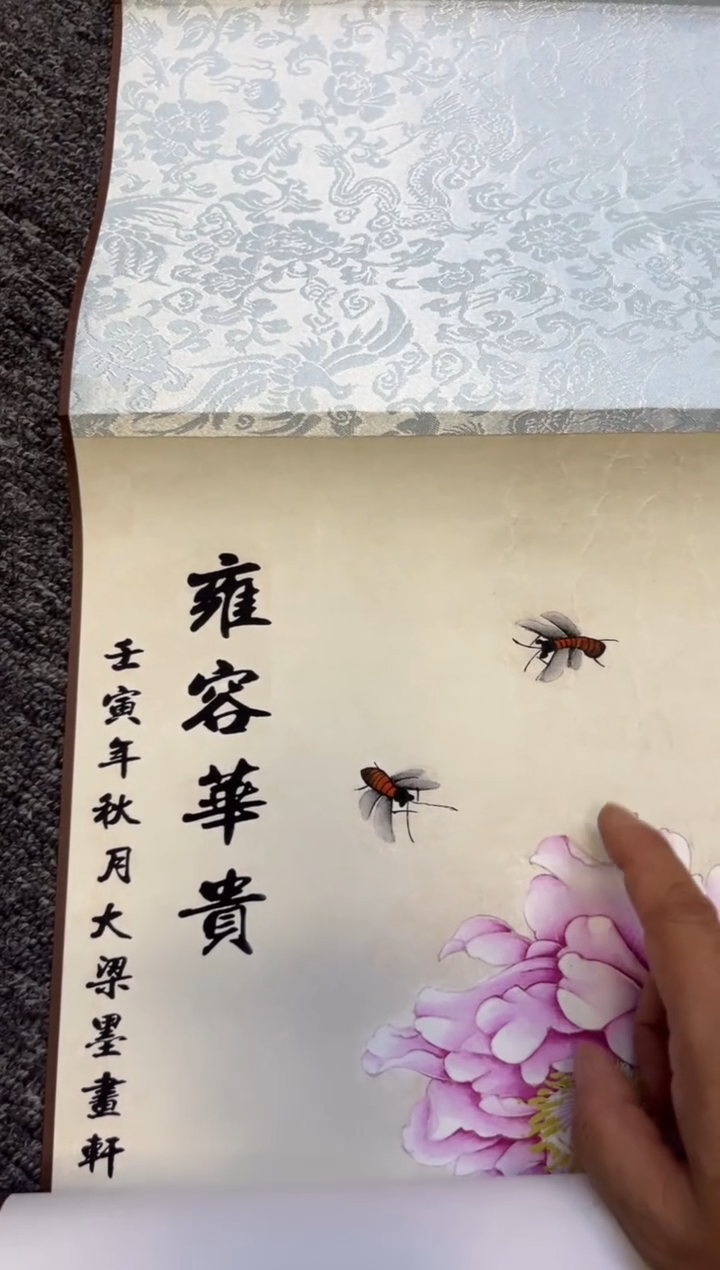 雍容華貴
壬寅年秋月大梁墨畫軒